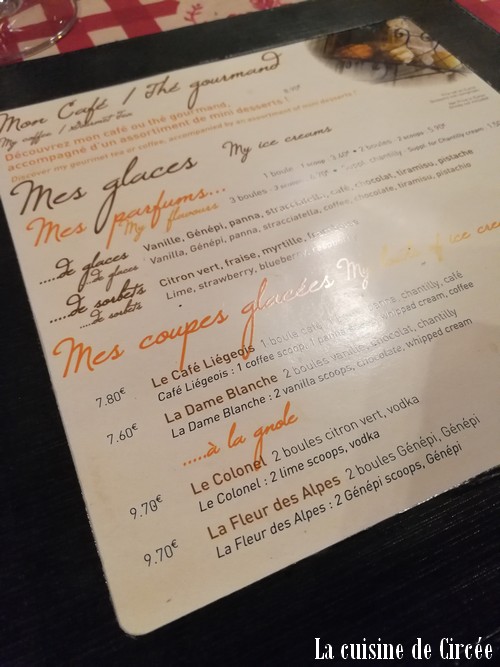 Mon Café / Thé gourmand
My coffee / gourmet Tea
Découvrez mon café ou thé gourmand,
accompagné d'un assortiment de mini desserts !
Discover my gourmet tea or coffee, accompanied by an assortment of mini desserts !
Mes glaces My ice creams
Mes parfums... My flavours
1 boule 2 boules
3 boules Suppl. chantilly
.....de glaces Vanille, Génépi, panna, stracciatella, café, chocolat, tiramisu, pistache
Vanilla, Génépi, panna, stracciatella, coffee, chocolate, tiramisu, pistachio
.....de sorbets Citron vert, fraise, myrtille,
....de sorbets Lime, strawberry, blueberry
Mes coupes glacées My of ice cream
7.80€ Le Café Liégeois 1 boule café, chantilly, café
Café Liégeois : 1 coffee scoop, 1 whipped cream, coffee
7.60€ La Dame Blanche 2 boules vanille, chocolat, chantilly
La Dame Blanche : 2 vanilla scoops, chocolate, whipped cream
.....à la gnole
9.70€ Le Colonel 2 boules citron vert, vodka
Le Colonel : 2 lime scoops, vodka
9.70€ La Fleur des Alpes 2 boules Génépi, Génépi
La Fleur des Alpes : 2 Génépi scoops, Génépi
La cuisine de Circée